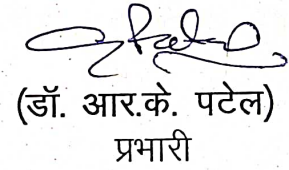 (डॉ. आर.के. पटेल)
प्रभारी